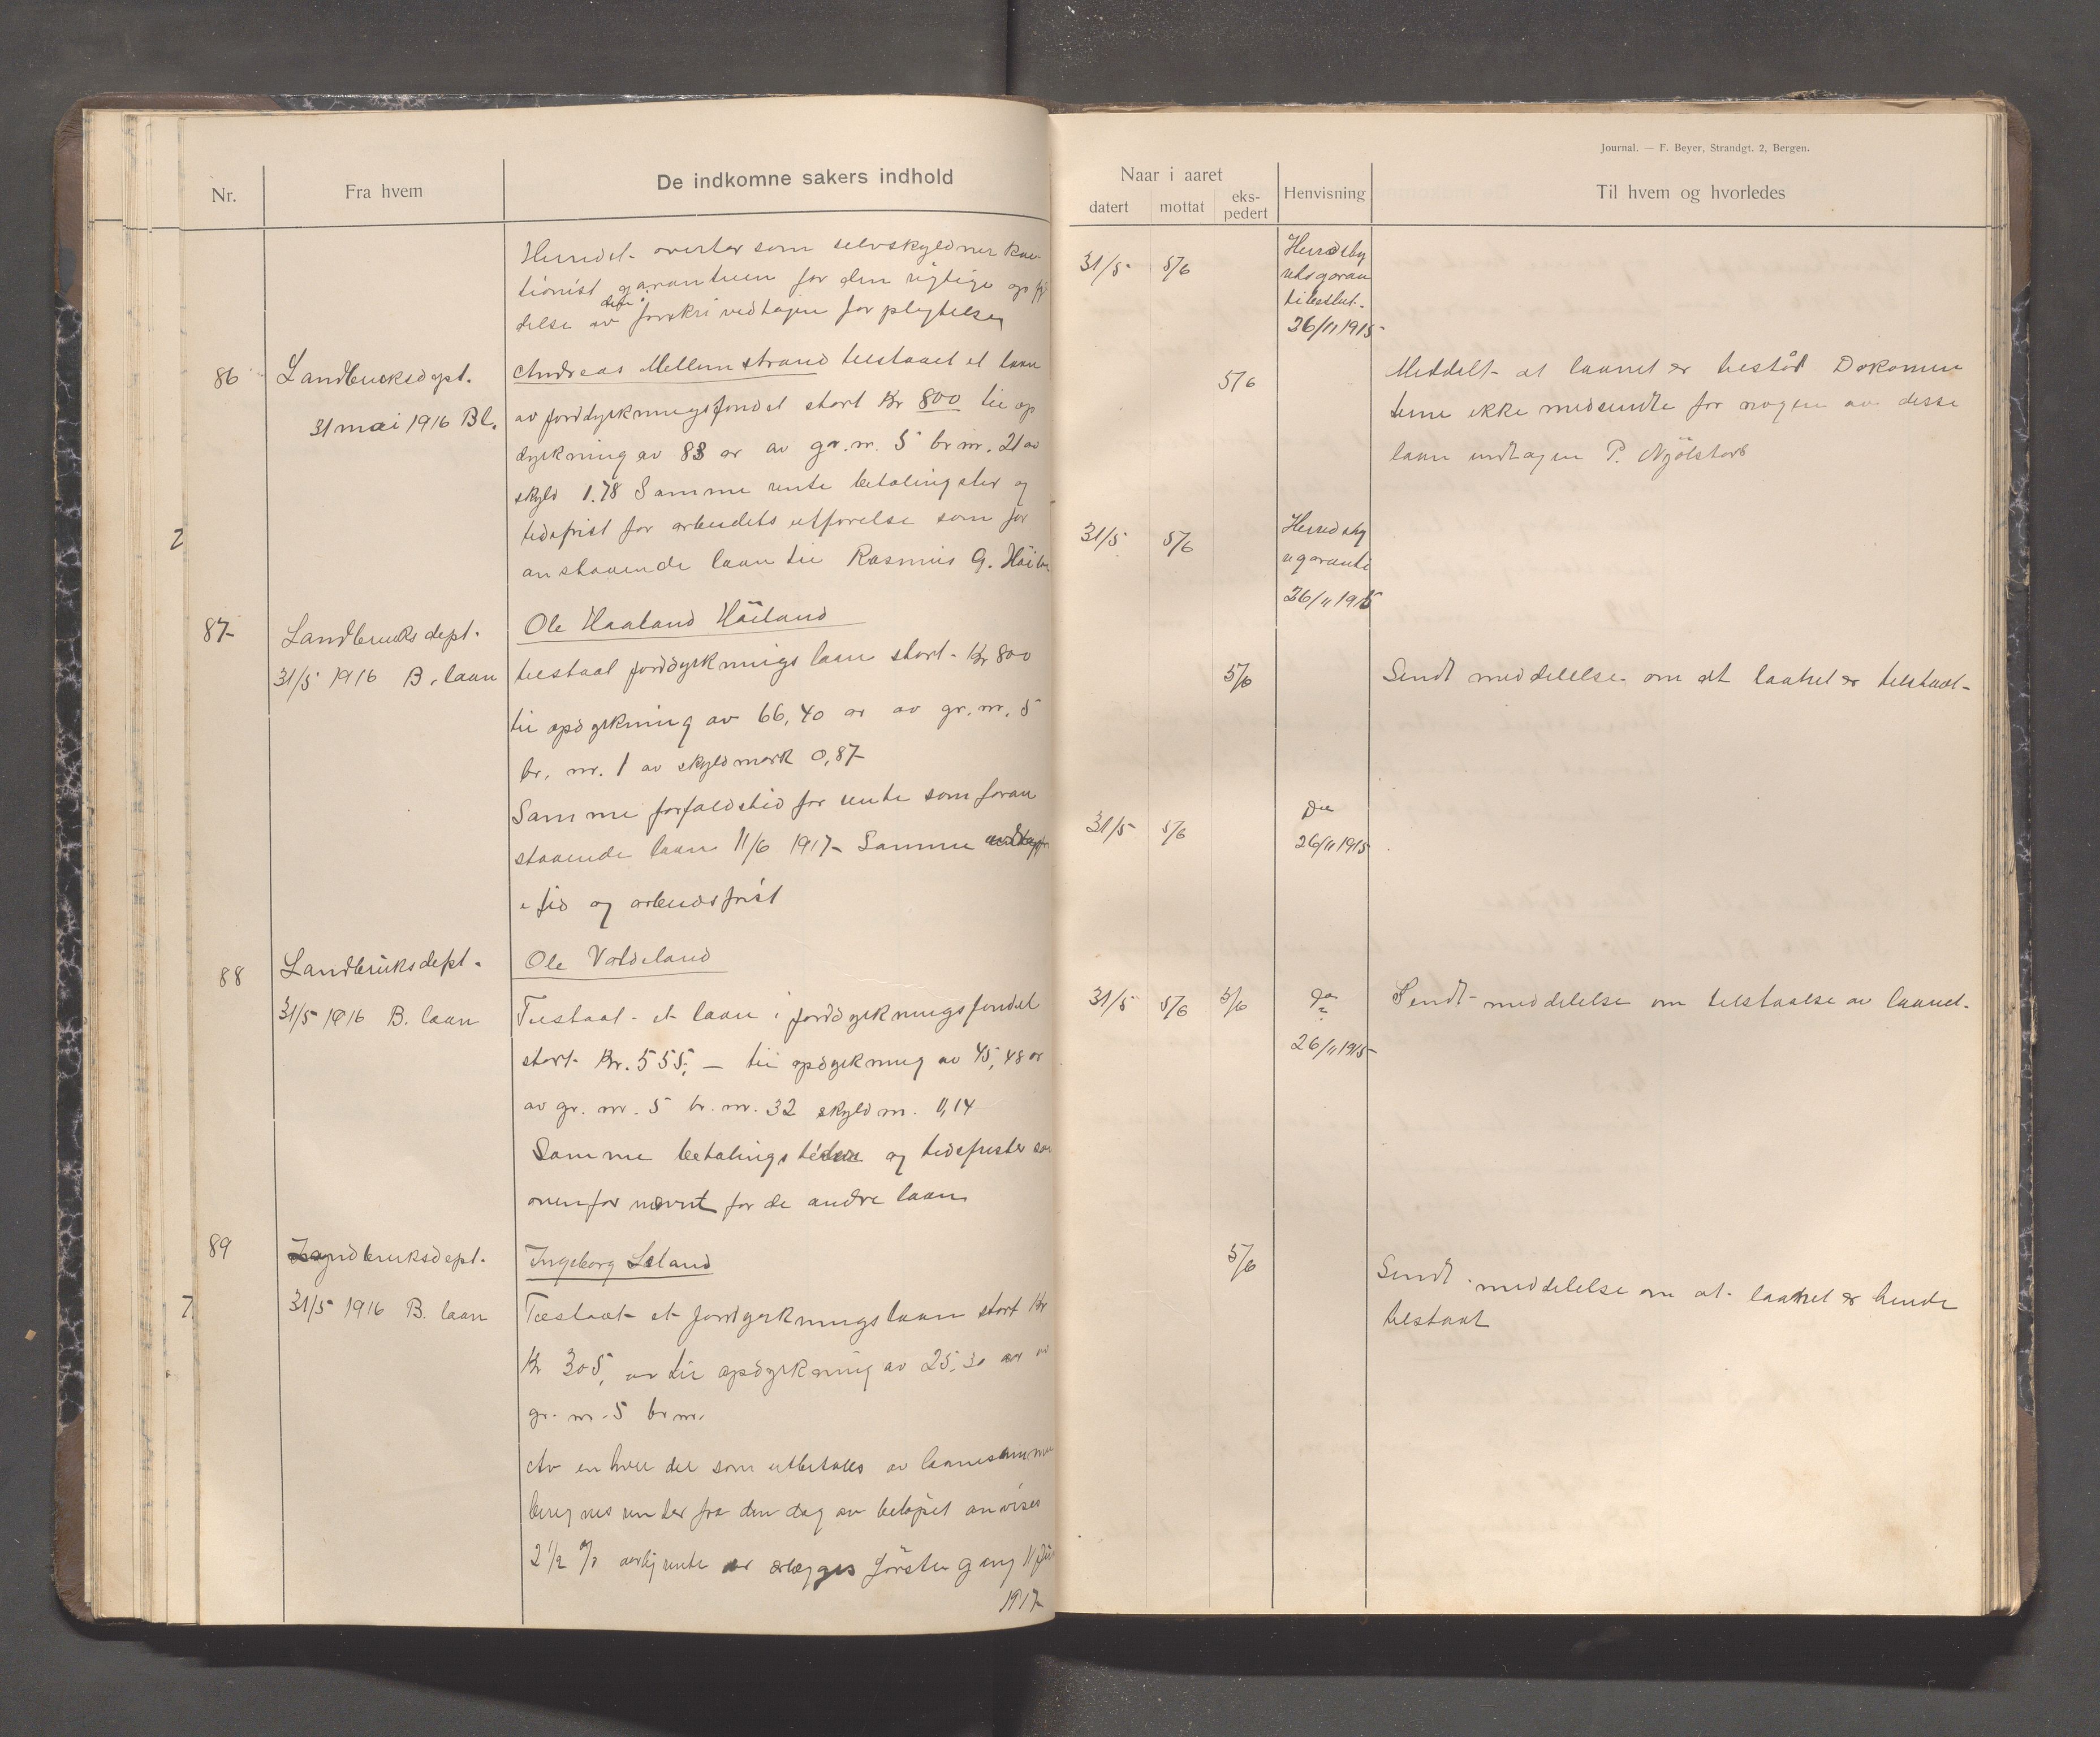 Journal. — F. Beyer, Strandgt. 2, Bergen.
Nr.
Fra hvem
De indkomne sakers indhold
Herredet overtar som selvskyldner kau
tionist garantien for den rigtige opfyl
delse av forskri vedtagne forplegtelser
86
Landbruksdept.
31 mai 1916 Bl.
Andreas Mellemstrand tilstaaet et laan
av jorddyrkningsfondet stort Kr 800 til op
dyrkning av 83 ar av gr. nr. 5 br nr. 21 av
skyld 1.78 Samme rente betalingster og
tidsfrist for arbeidets utførelse som for
anstaaende laan til Rasmus G.
2
87
Landbruksdept.
31/5 1916 B. laan
Ole Haaland Häiland
tilstaat jorddyrkningslaan stort Kr 800
til opdyrkning av 66,40 ar av gr. nr. 5
br. nr. 1 av skyldmark 0,87
Samme forfaldstid for rente som foran
staaende laan 11/6 1917 Samme
tid og arbeidsfrist
88
Landbruksdept.
31/5 1916 B. laan
Ole Valdeland
Tilstaat et laan i jorddyrkningsfondet
stort Kr. 555,- til opdyrkning av 45,48 ar
av gr. nr. 5 br. nr. 32 skyldm. 1,14
Samme betalings og tidsfrister so
ovenfor nævnt for de andre laan
89
Landbruksdept.
31/5 1916 B. laan
Ingeborg Leland
Tilstaat et jorddyrkningslaan stort Kr
Kr 305, til opdyrkning av 25,30 ar av
gr. nr. 5 br nr.
7
Av en hver del som utbetales av laanesummen
beregnes renter fra den dag av beløpet anvises
2 1/2 % aarlig rente erlægges første gang 11 Juni
1917
Naar i aaret
datert
mottat
eks-
pedert
Henvisning
Til hvem og hvorledes
31/5 5/6 Herredsby
retsgaran
tibeslut.
26/11 1915
5/6 Meddelt at laanet er Dokumen
tene ikke medsendte for nogen av disse
laan undtagen P. Njölstad
31/5 5/6 Herredsby
garanti
26/11 1915
5/6 Sendt meddelelse om at laanet er tilstaat
31/5 5/6 Do
26/11 1915
31/5 5/6 5/6 Do Sendt meddelelse om tilstaalse av laanet.
26/11 1915
5/6 Sendt meddelelse om at laanet er hende
tilstaat